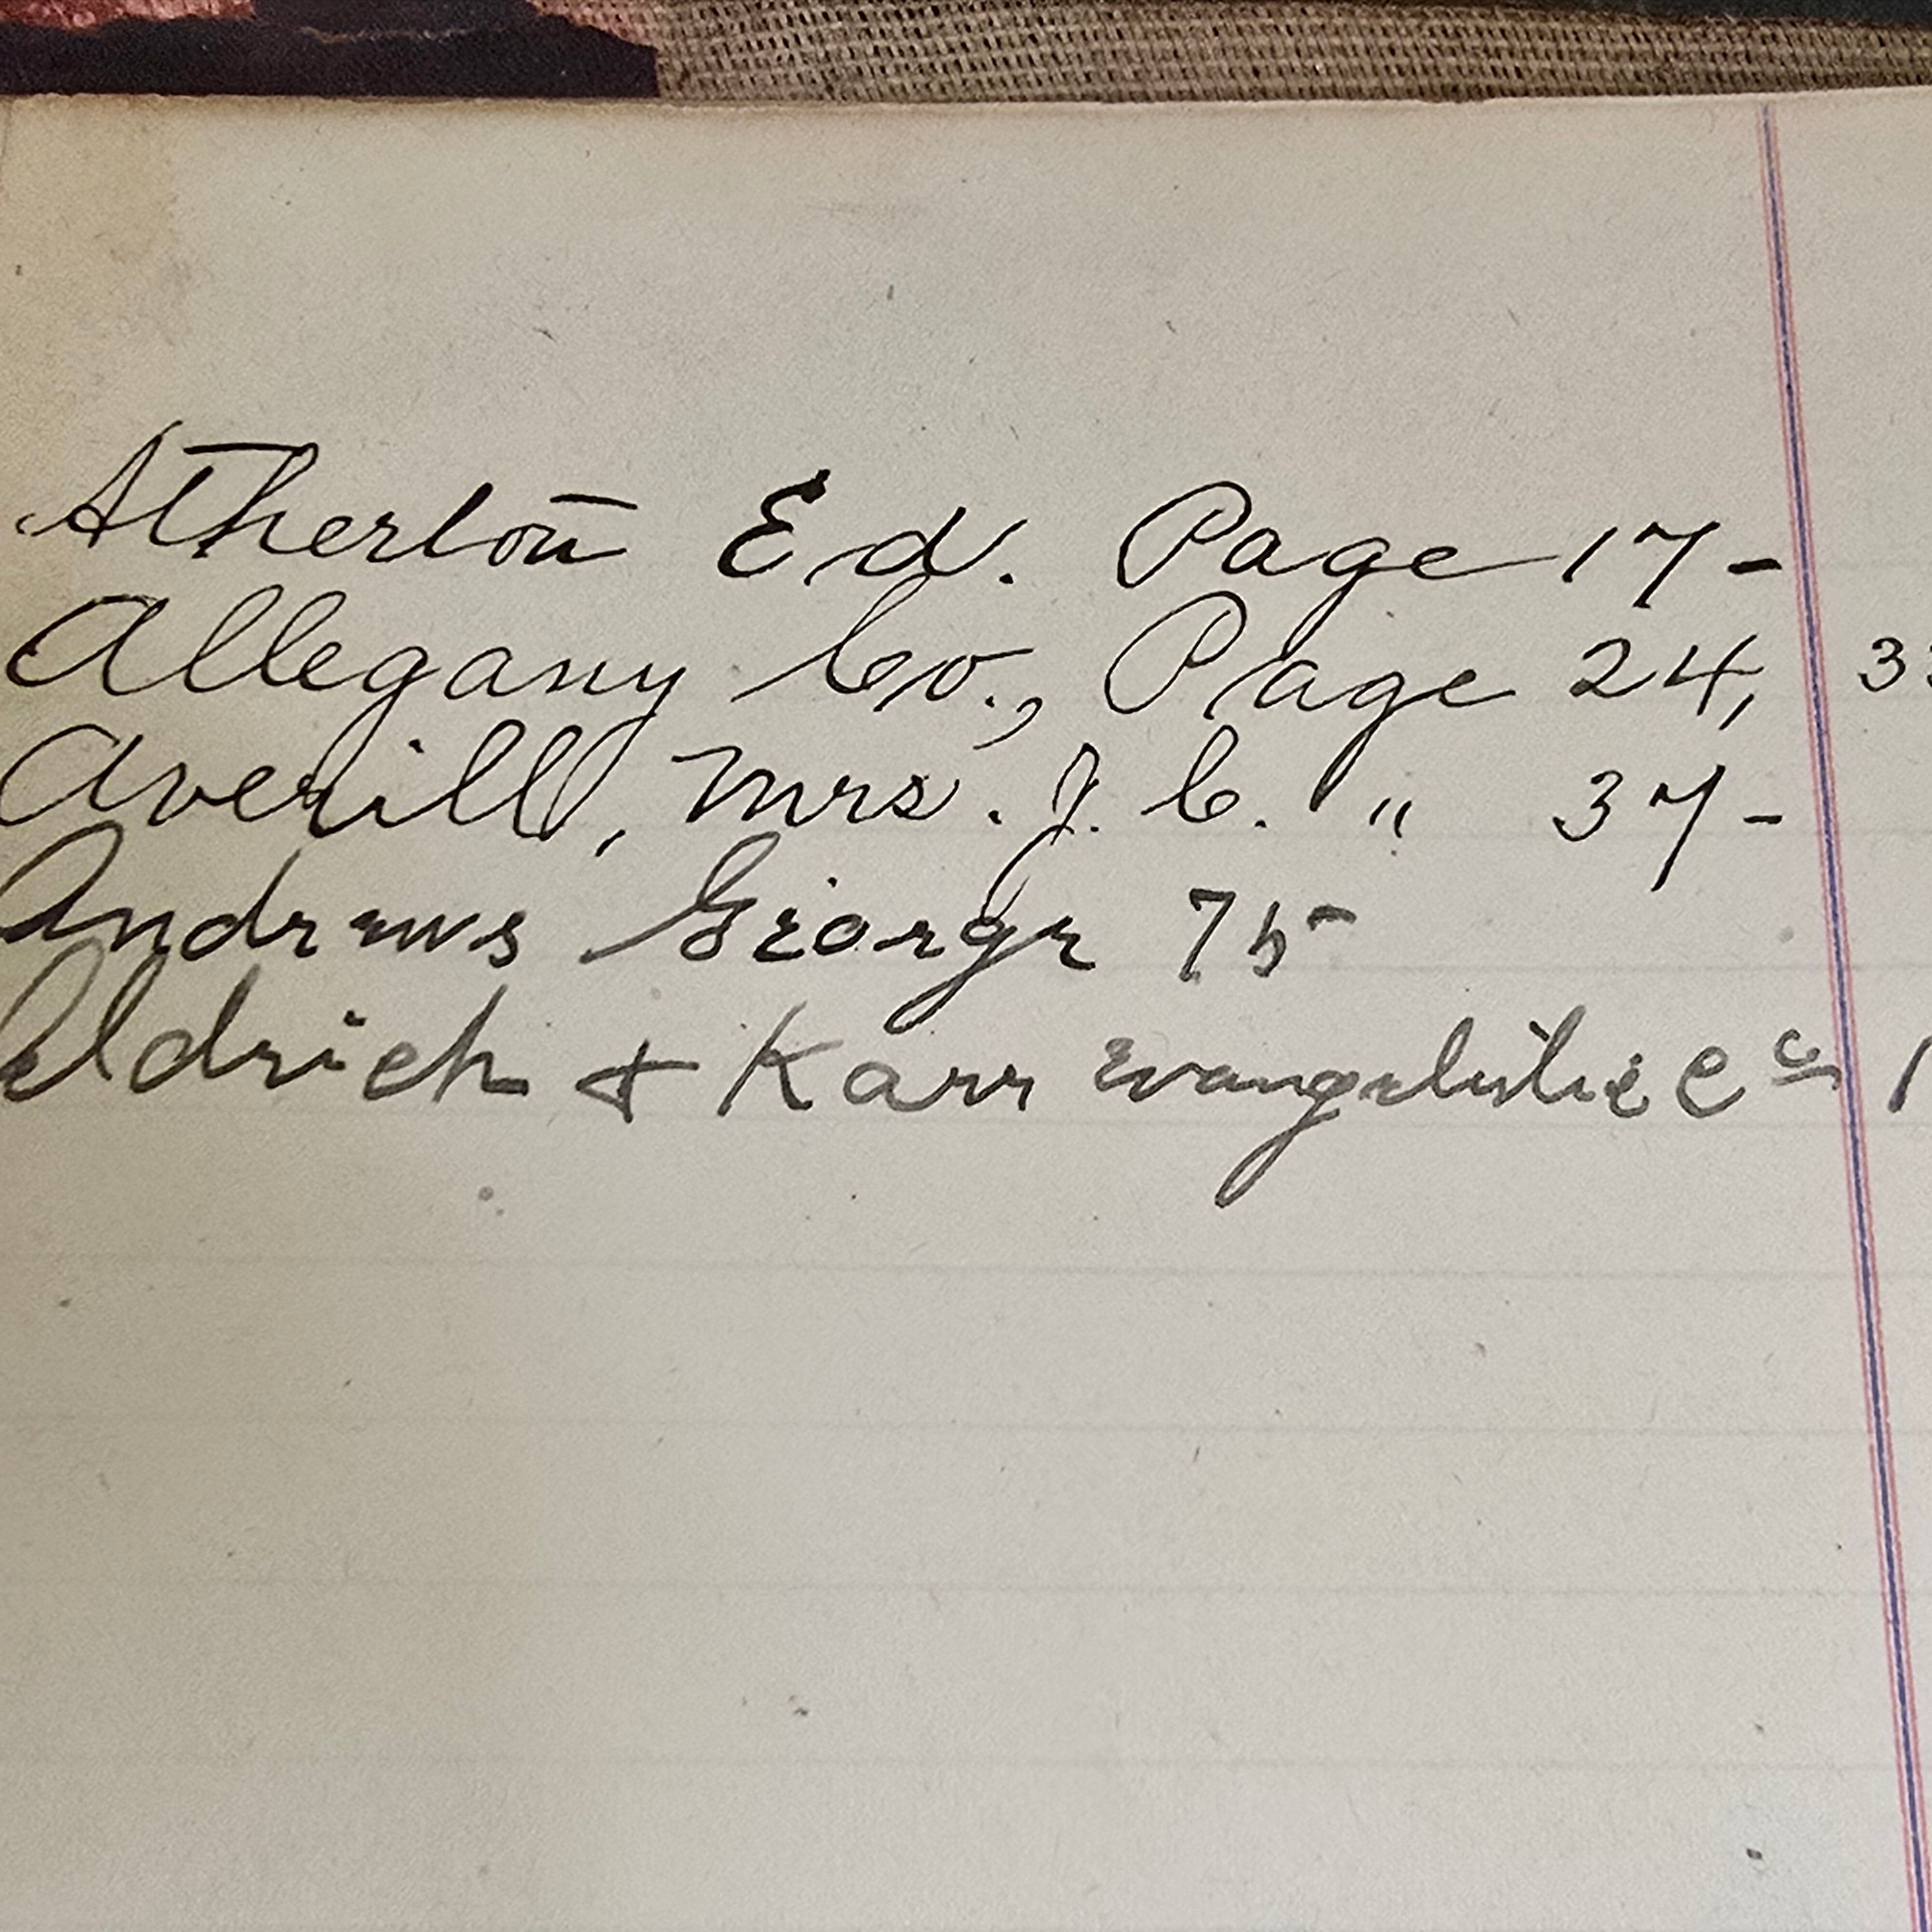 Atherton Ed. Page 17-
Allegany Co., Page 24, 33
Averill, Mrs. J. C. " 37-
Andrews George 75
Aldrich & Karr evangelistic